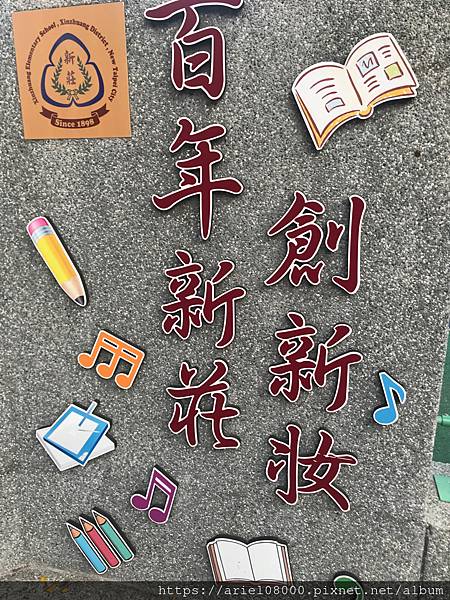 百年新莊
創新妝
Xinzhuang Elementary School , Xinzhuang District , New Taipei City
新莊
Since 1898
https://ariel08000.pixnet.net/album